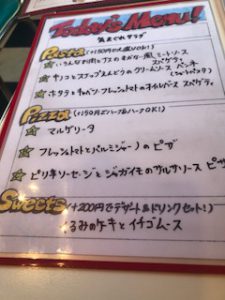 Today's Menu!
気まぐれサラダ
Pasta (+150円で大盛りOK!)
ミートソース
スパゲティ
キノコとスナップえんどうのクリームソース ペンネ
ホタテとキャベツ フレッシュトマトのオイルソース スパゲティ
Pizza (+150円でハーフ&ハーフOK!)
マルゲリータ
フレッシュトマトとパルミジャーノのピザ
ピリ辛ソーセージとジャガイモのサルサソース ピザ
Sweets (+200円でデザート&ドリンクセット!)
くるみのケーキとイチゴムース